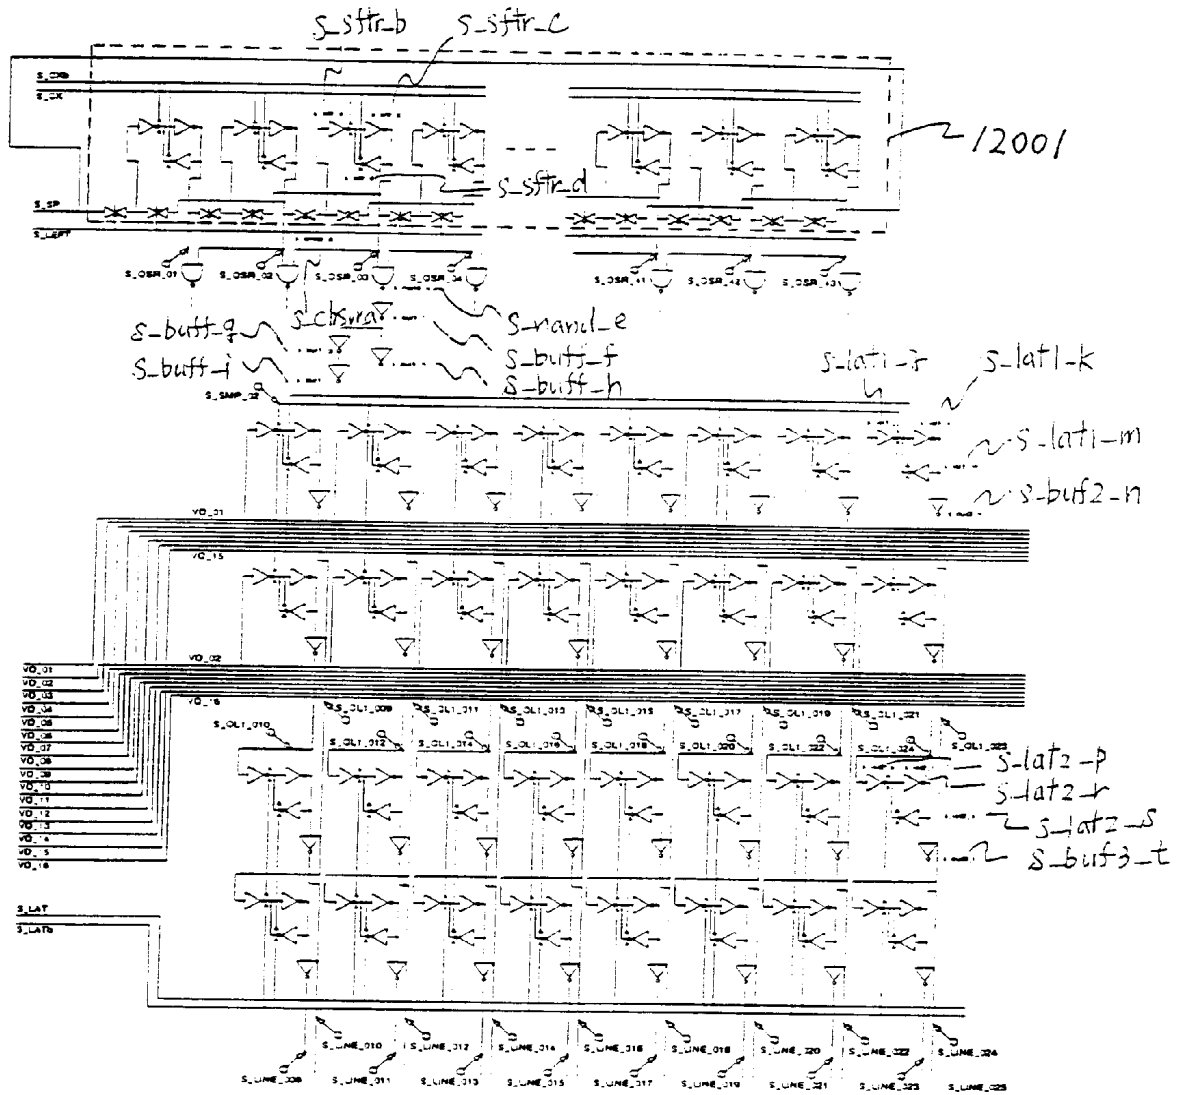 s_sftr_b s_sftr_c
S_CKb
S_CK
12001
s_sftr_d
S_SP
S_LEFT
S_OSR_01 S_OSR_02 S_OSR_03 S_OSR_04 S_OSR_41 S_OSR_42 S_OSR_431
s_nand_e
s_buff_g
s_buff_f
s_buff_i
s_buff_h
s_lat1_k
S_SMP_02
s_lat1_m
s_buf2_n
VD_01
VD_15
VD_02
VD_16
VD_01
VD_02
VD_03
VD_04
VD_05
VD_06
VD_07
VD_08
VD_09
VD_10
VD_11
VD_12
VD_13
VD_14
VD_15
VD_16
S_OL1_009 S_OL1_011 S_OL1_013 S_OL1_015 S_OL1_017 S_OL1_019 S_OL1_021
S_OL1_010 S_OL1_012 S_OL1_014 S_OL1_016 S_OL1_018 S_OL1_020 S_OL1_022 S_OL1_024 S_OL1_023
s_lat2_p
s_lat2_r
s_lat2_s
s_buf3_t
S_LAT
S_LATb
S_LINE_010 S_LINE_012 S_LINE_014 S_LINE_016 S_LINE_018 S_LINE_020 S_LINE_022 S_LINE_024
S_LINE_009 S_LINE_011 S_LINE_013 S_LINE_015 S_LINE_017 S_LINE_019 S_LINE_021 S_LINE_023 S_LINE_025